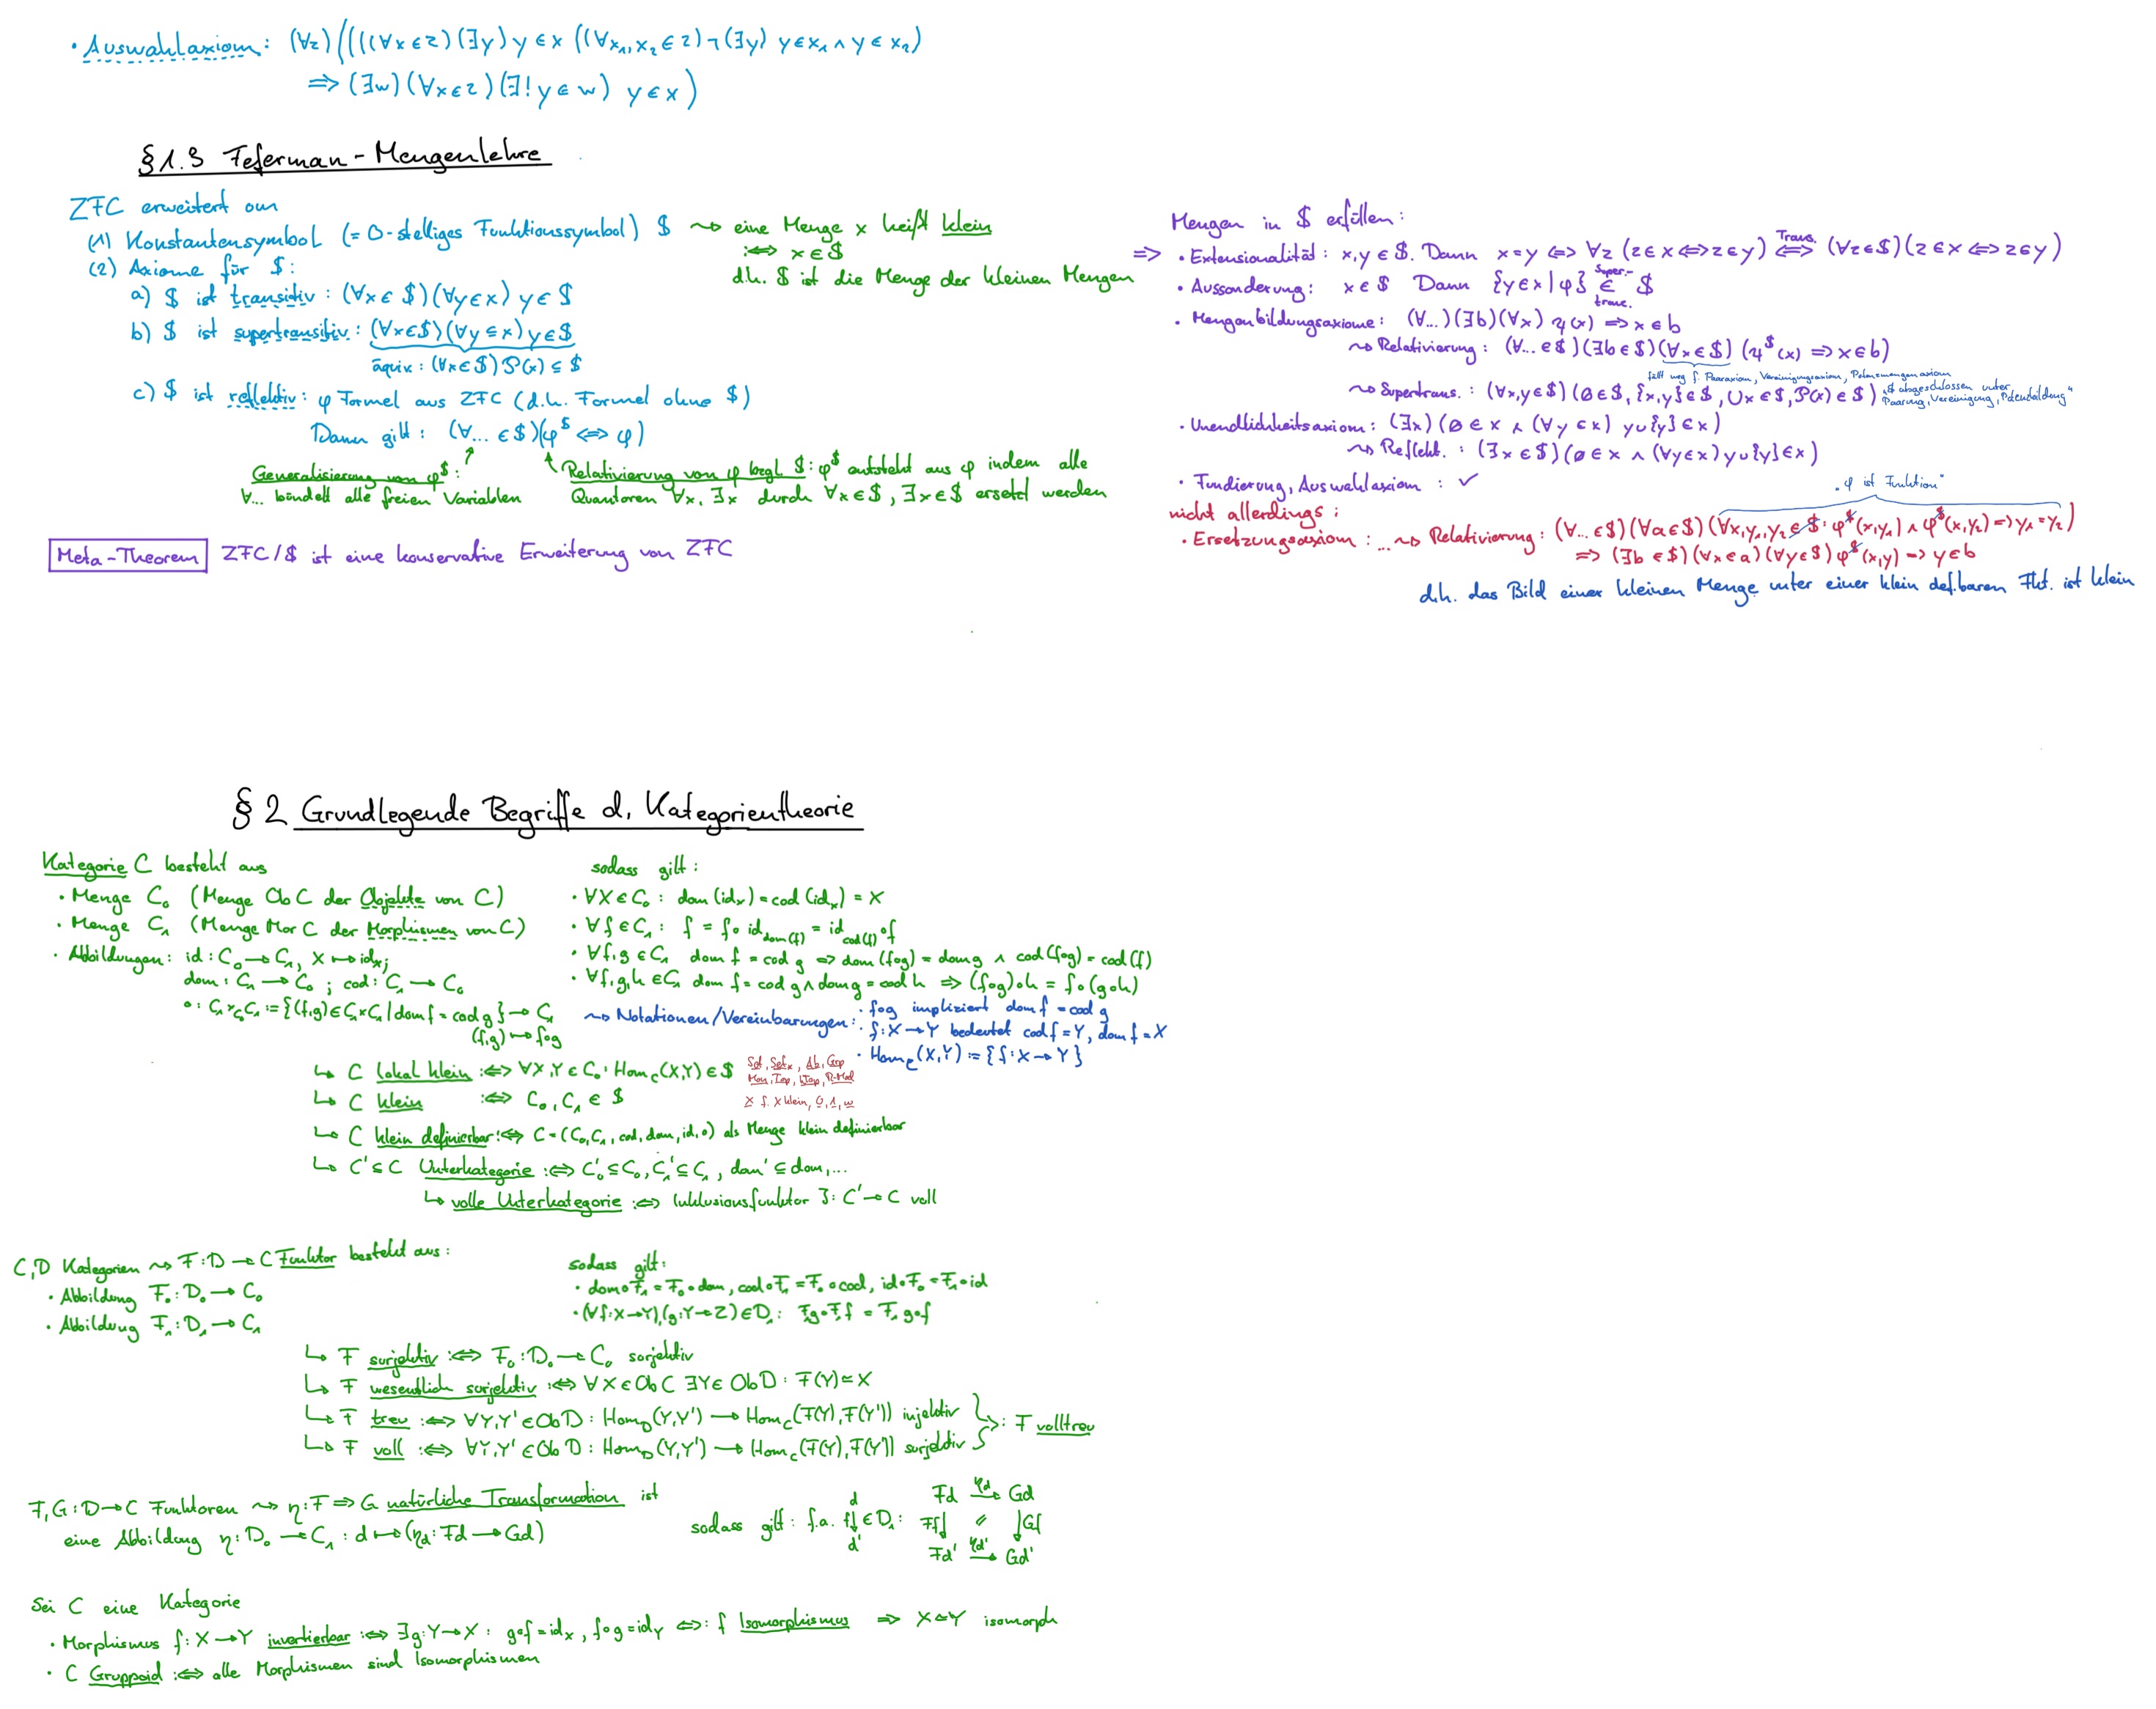 • Auswahlaxiom: (∀z)((((∀x∈z)(∃y) y∈x ((∀x₁,x₂∈z)¬(∃y) y∈x₁ ∧ y∈x₂)
⇒ (∃w)(∀x∈z)(∃!y∈w) y∈x)
§1.3 Feferman-Mengenlehre
ZFC erweitert um
(1) Konstantensymbol (= 0-stelliges Funktionssymbol) $ ⇝ eine Menge x heißt klein
:⇔ x∈$
d.h. $ ist die Menge der kleinen Mengen
(2) Axiome für $:
a) $ ist transitiv: (∀x∈$)(∀y∈x) y∈$
b) $ ist supertransitiv: (∀x∈$)(∀y⊆x) y∈$
äquiv.: (∀x∈$) P(x) ⊆ $
c) $ ist reflektiv: φ Formel aus ZFC (d.h. Formel ohne $)
Dann gilt: (∀...∈$)(φ^$ ⇔ φ)
Generalisierung von φ^$:
∀... bündelt alle freien Variablen
Relativierung von φ bzgl $: φ^$ entsteht aus φ indem alle
Quantoren ∀x, ∃x durch ∀x∈$, ∃x∈$ ersetzt werden
Meta-Theorem ZFC/$ ist eine konservative Erweiterung von ZFC
Mengen in $ erfüllen:
⇒ • Extensionalität: x,y∈$. Dann x=y ⇔ ∀z (z∈x⇔z∈y) ⇔ Trans. (∀z∈$)(z∈x⇔z∈y)
• Aussonderung: x∈$ Dann {y∈x|φ} ∈ $ Super-trans.
• Mengenbildungsaxiome: (∀...)(∃b)(∀x) ψ(x) ⇒ x∈b
⇝ Relativierung: (∀...∈$)(∃b∈$)(∀x∈$)(ψ^$(x) ⇒ x∈b)
fällt weg f. Paaraxiom, Vereinigungsaxiom, Potenzmengenaxiom
⇝ Supertrans.: (∀x,y∈$)(∅∈$, {x,y}∈$, ∪x∈$, P(x)∈$) „$ abgeschlossen unter
Paarung, Vereinigung, Potenzbildung"
• Unendlichkeitsaxiom: (∃x)(∅∈x ∧ (∀y∈x) y∪{y}∈x)
⇝ Reflekt.: (∃x∈$)(∅∈x ∧ (∀y∈x) y∪{y}∈x)
• Fundierung, Auswahlaxiom: ✓
„φ ist Funktion"
nicht allerdings:
• Ersetzungsaxiom: ...⇝ Relativierung: (∀...∈$)(∀a∈$)(∀x,y₁,y₂∈$: φ^$(x,y₁) ∧ φ^$(x,y₂) ⇒ y₁=y₂)
⇒ (∃b∈$)(∀x∈a)(∀y∈$) φ^$(x,y) ⇒ y∈b
d.h. das Bild einer kleinen Menge unter einer klein def.baren Fkt. ist klein
§2 Grundlegende Begriffe d. Kategorientheorie
Kategorie C besteht aus
• Menge C₀ (Menge Ob C der Objekte von C)
• Menge C₁ (Menge Mor C der Morphismen von C)
• Abbildungen: id: C₀→C₁, X↦id_X;
dom: C₁→C₀; cod: C₁→C₀
∘: C₁×_{C₀}C₁ := {(f,g)∈C₁×C₁ | dom f = cod g} → C₁
(f,g) ↦ f∘g
sodass gilt:
• ∀X∈C₀: dom(id_X) = cod(id_X) = X
• ∀f∈C₁: f = f∘id_dom(f) = id_cod(f)∘f
• ∀f,g∈C₁ dom f = cod g ⇒ dom(f∘g) = dom g ∧ cod(f∘g) = cod(f)
• ∀f,g,h∈C₁ dom f = cod g ∧ dom g = cod h ⇒ (f∘g)∘h = f∘(g∘h)
⇝ Notationen/Vereinbarungen: • f∘g impliziert dom f = cod g
• f: X→Y bedeutet cod f = Y, dom f = X
• Hom_C(X,Y) := {f: X→Y}
↳ C lokal klein :⇔ ∀X,Y∈C₀: Hom_C(X,Y)∈$ Set, Set_*, Ab, Grp
Mon, Top, hTop, R-Mod
↳ C klein :⇔ C₀, C₁ ∈ $ X f. X klein, 0, 1, ω
↳ C klein definierbar :⇔ C = (C₀, C₁, cod, dom, id, ∘) als Menge klein definierbar
↳ C'⊆C Unterkategorie :⇔ C'₀⊆C₀, C'₁⊆C₁, dom'⊆dom,...
↳ volle Unterkategorie :⇔ Inklusionsfunktor J: C'→C voll
C,D Kategorien ⇝ F: D→C Funktor besteht aus:
• Abbildung F₀: D₀→C₀
• Abbildung F₁: D₁→C₁
sodass gilt:
• dom∘F₁ = F₀∘dom, cod∘F₁ = F₀∘cod, id∘F₀ = F₁∘id
• (∀f: X→Y),(g: Y→Z)∈D₁: F₁g∘F₁f = F₁ g∘f
↳ F surjektiv :⇔ F₀: D₀→C₀ surjektiv
↳ F wesentlich surjektiv :⇔ ∀X∈Ob C ∃Y∈Ob D: F(Y)≃X
↳ F treu :⇔ ∀Y,Y'∈Ob D: Hom_D(Y,Y') → Hom_C(F(Y),F(Y')) injektiv
↳ F voll :⇔ ∀Y,Y'∈Ob D: Hom_D(Y,Y') → Hom_C(F(Y),F(Y')) surjektiv
} :⇔ F volltreu
F,G: D→C Funktoren ⇝ η: F⇒G natürliche Transformation ist
eine Abbildung η: D₀→C₁: d↦(η_d: Fd→Gd)
sodass gilt: f.a. d f↓ d' ∈D₁:
Fd η_d→ Gd
Ff↓ ↓Gf
Fd' η_d'→ Gd'
Sei C eine Kategorie
• Morphismus f: X→Y invertierbar :⇔ ∃g: Y→X: g∘f = id_X, f∘g = id_Y ⇔: f Isomorphismus ⇒ X≃Y isomorph
• C Gruppoid :⇔ alle Morphismen sind Isomorphismen